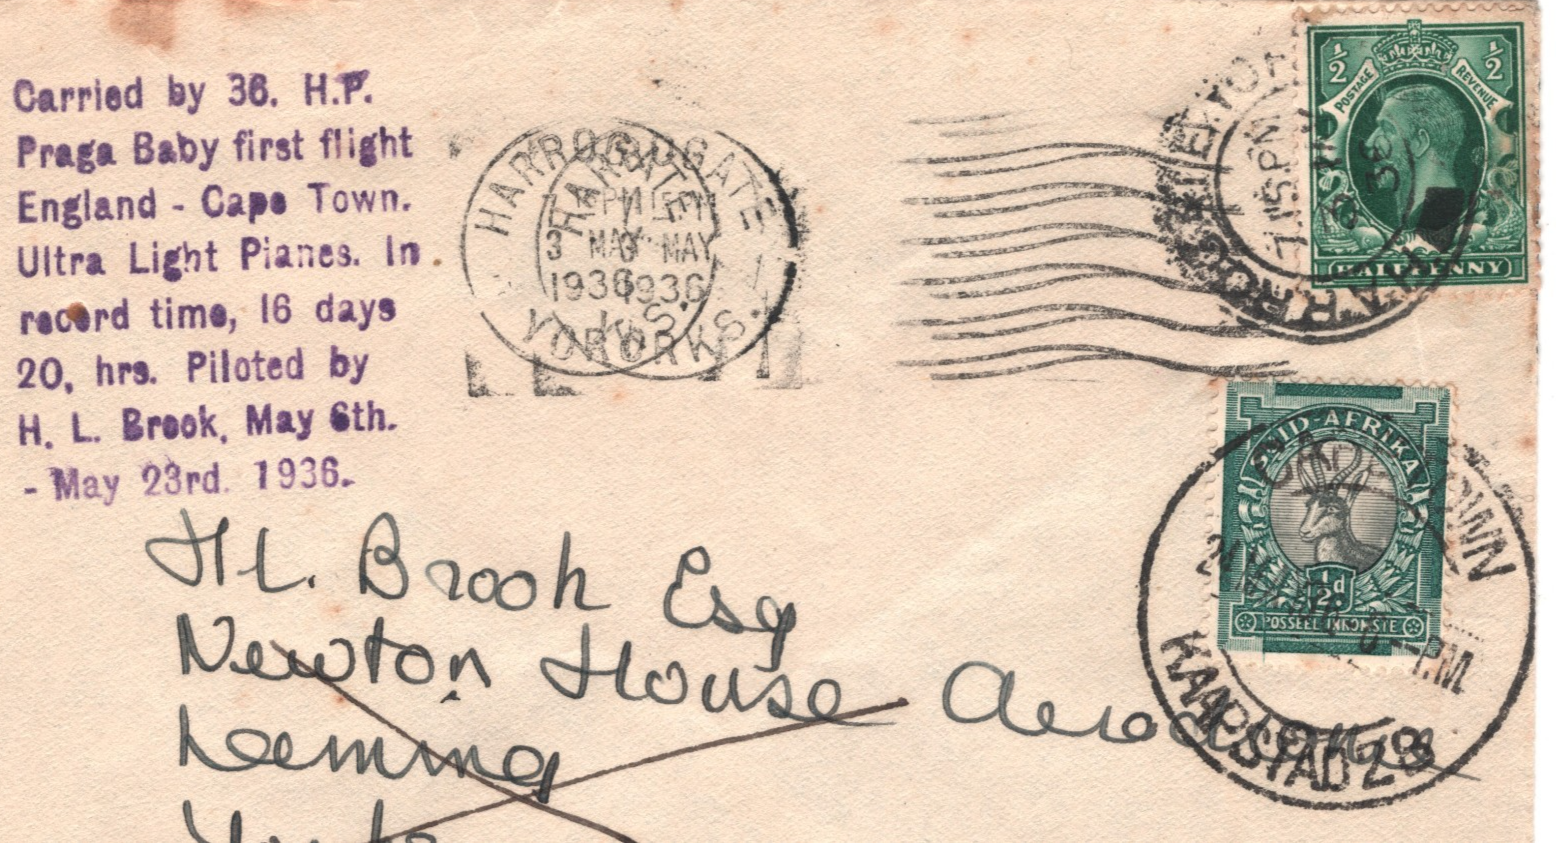 Carried by 36. H.P.
Praga Baby first flight
England - Cape Town.
Ultra Light Planes. In
record time, 16 days
20, hrs. Piloted by
H. L. Brook, May 6th.
- May 23rd. 1936.
HARROGATE
3 MAY
1936
YORKS.
3 MAY
1936
YORKS.
7.15PM
½ ½
POSTAGE REVENUE
HALFPENNY
SUID-AFRIKA
½d
POSSEEL INKOMSTE
TOWN
P.M.
KAAPSTAD 28
H L. Brook Esq
Newton House